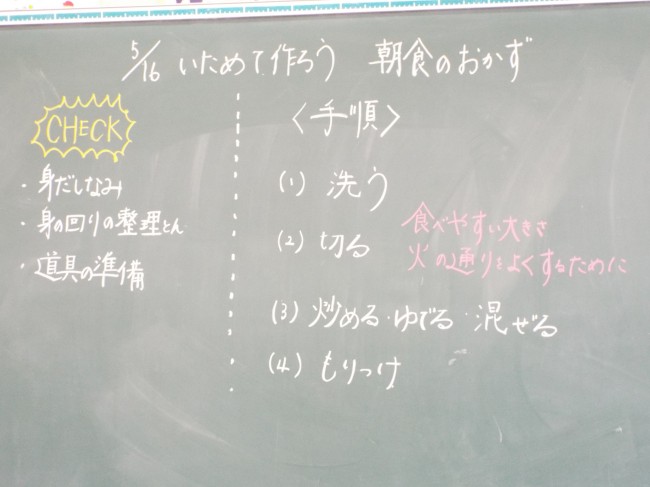 5/16 いためて作ろう 朝食のおかず
CHECK
・身だしなみ
・身の回りの整理とん
・道具の準備
〈手順〉
(1) 洗う
(2) 切る
食べやすい大きさ
火の通りをよくするために
(3) 炒める・ゆでる・混ぜる
(4) もりつけ